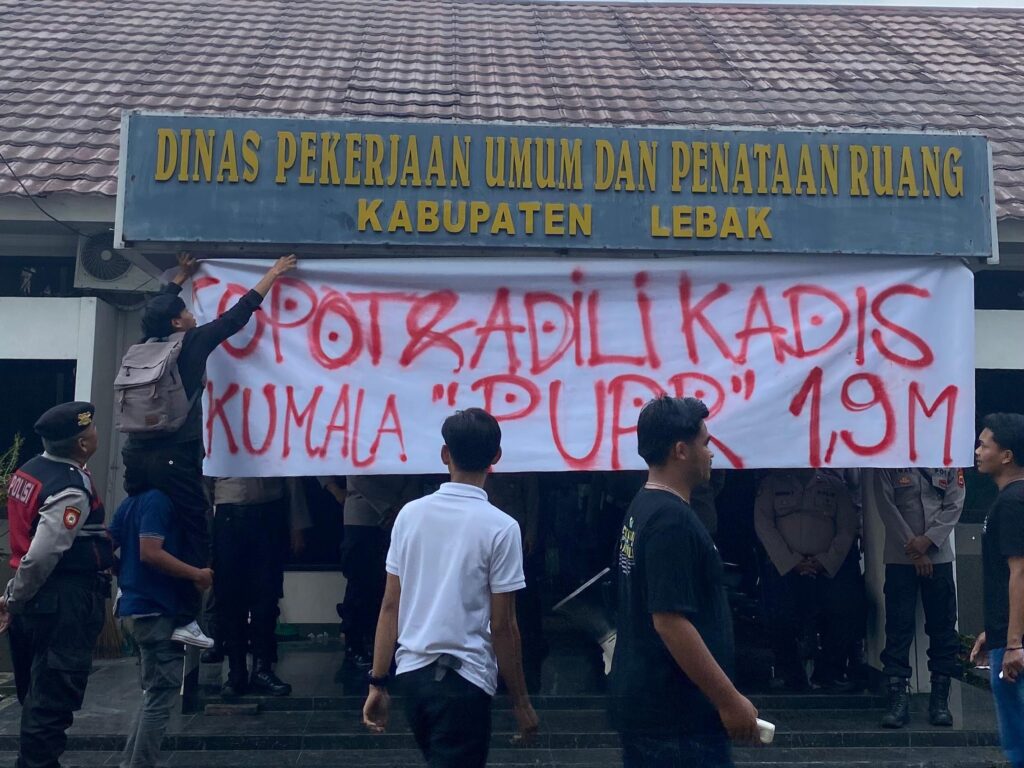 DINAS PEKERJAAN UMUM DAN PENATAAN RUANG
KABUPATEN LEBAK
COPOT & ADILI KADIS
KUMALA "PUPR" 1,9 M
POLISI